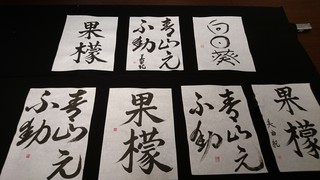 果檬
青山元
不動
向日葵
青山元
不動
果檬
青山元
不動
果檬